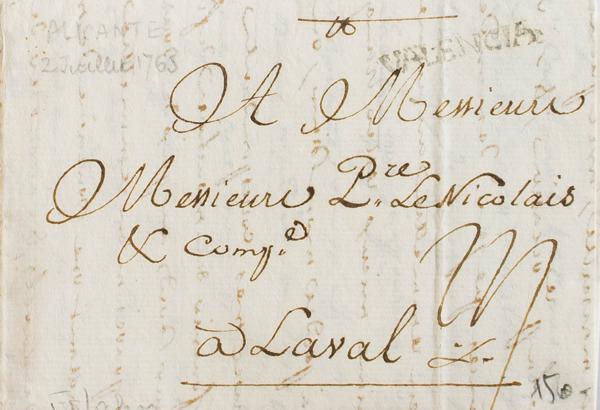 ALICANTE
2 Juillet 1768
VALENCIA
A Messieurs
Messieurs Pre LeNicolais
& Compe
a Laval
150